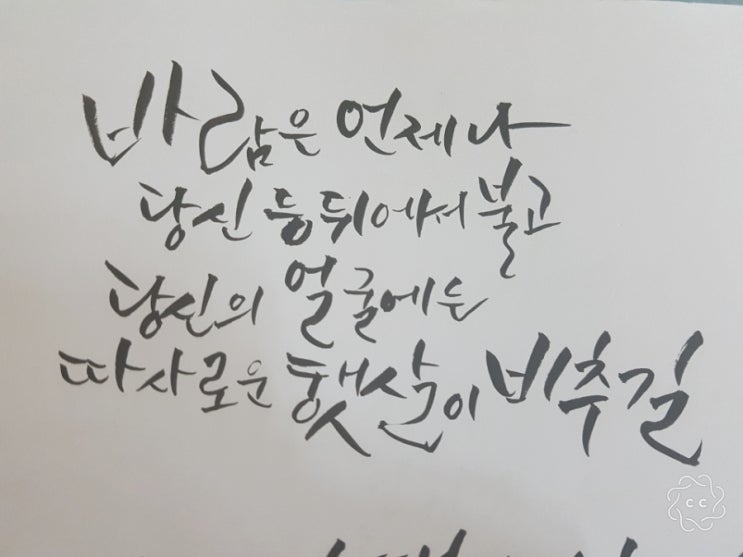 바람은 언제나
당신 등 뒤에서 불고
당신의 얼굴에는
따사로운 햇살이 비추길
cc